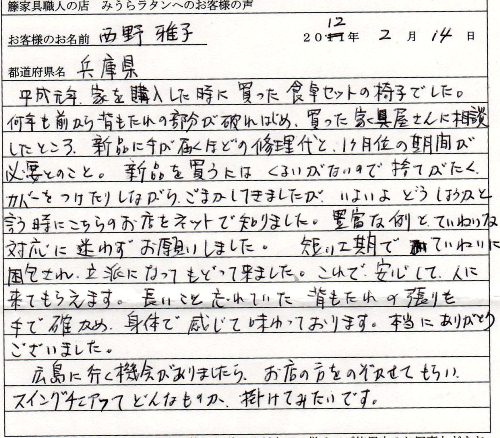 籐家具職人の店 みうらラタンへのお客様の声
お客様のお名前 西野 雅子 2012年 2月 14日
都道府県名 兵庫県
平成元年、家を購入した時に買った食卓セットの椅子でした。
何年も前から背もたれの部分が破れはじめ、買った家具屋さんに相談
したところ、新品に手が届くほどの修理代と、1ヶ月位の期間が
必要とのこと。新品を買うには くるいがないので捨てがたく、
カバーをつけたりしながら、ごまかしてきましたが、いよいよどうしようかと
言う時にこちらのお店をネットで知りました。豊富な例と、ていねいな
対応に迷わずお願いしました。 短い工期で ていねいに
困包され、立派になってもどって来ました。これで、安心して、人に
来てもらえます。長いこと忘れていた背もたれの張りも
手で確かめ、身体で感じて味わっております。本当にありがとう
ございました。
広島に行く機会がありましたら、お店の方をのぞかせてもらい、
スイングチェアーってどんなものか、掛けてみたいです。